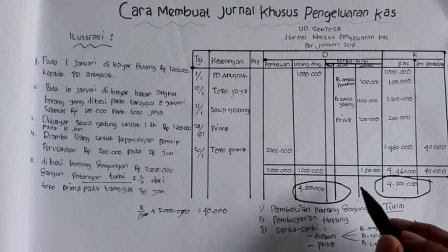 Cara Membuat Jurnal Khusus Pengeluaran Kas
Ilustrasi :
UD SENTOSA
Jurnal Khusus Pengeluaran Kas
Per Januari 2018
1. Pada 1 Januari di bayar Hutang Rp 1.000.000
kepada PD anugrah
2. Pada 10 Januari di bayar beban angkut
barang yang dibeli pada tanggal 8 januari
sebesar Rp 100.000 pada toko jaya
3. Dibayar Sewa gedung untuk 1 th Rp 1.200.000
4. Diambil Uang untuk kepentingan pemilik
Perusahaan Rp 200.000 pada 28 jan
5. di beli barang dagangan Rp 2.000.000
dengan Potongan tunai 2% dari
toko prima pada tanggal 30 jan
Tgl Keterangan Ref Pembelian Utang dag Serba-serbi Kas Pot pembelian
D K
1/1 PD Anugrah 1.000.000 1.000.000
10/1 Toko jaya 100.000 100.000
11/1 Sewa gedung
28/01 Prive Prive 200.000 200.000
30/1 Toko prima 2.000.000 1.960.000 40.000
2.000.000 1.000.000 4.460.000 40.000
4.500.000 4.500.000
2/100 x 2.000.000 = 40.000
1) Pembelian Barang Dagang Tunai
2) Pembayaran Hutang
3) Serba-serbi
- Beban
- Prive